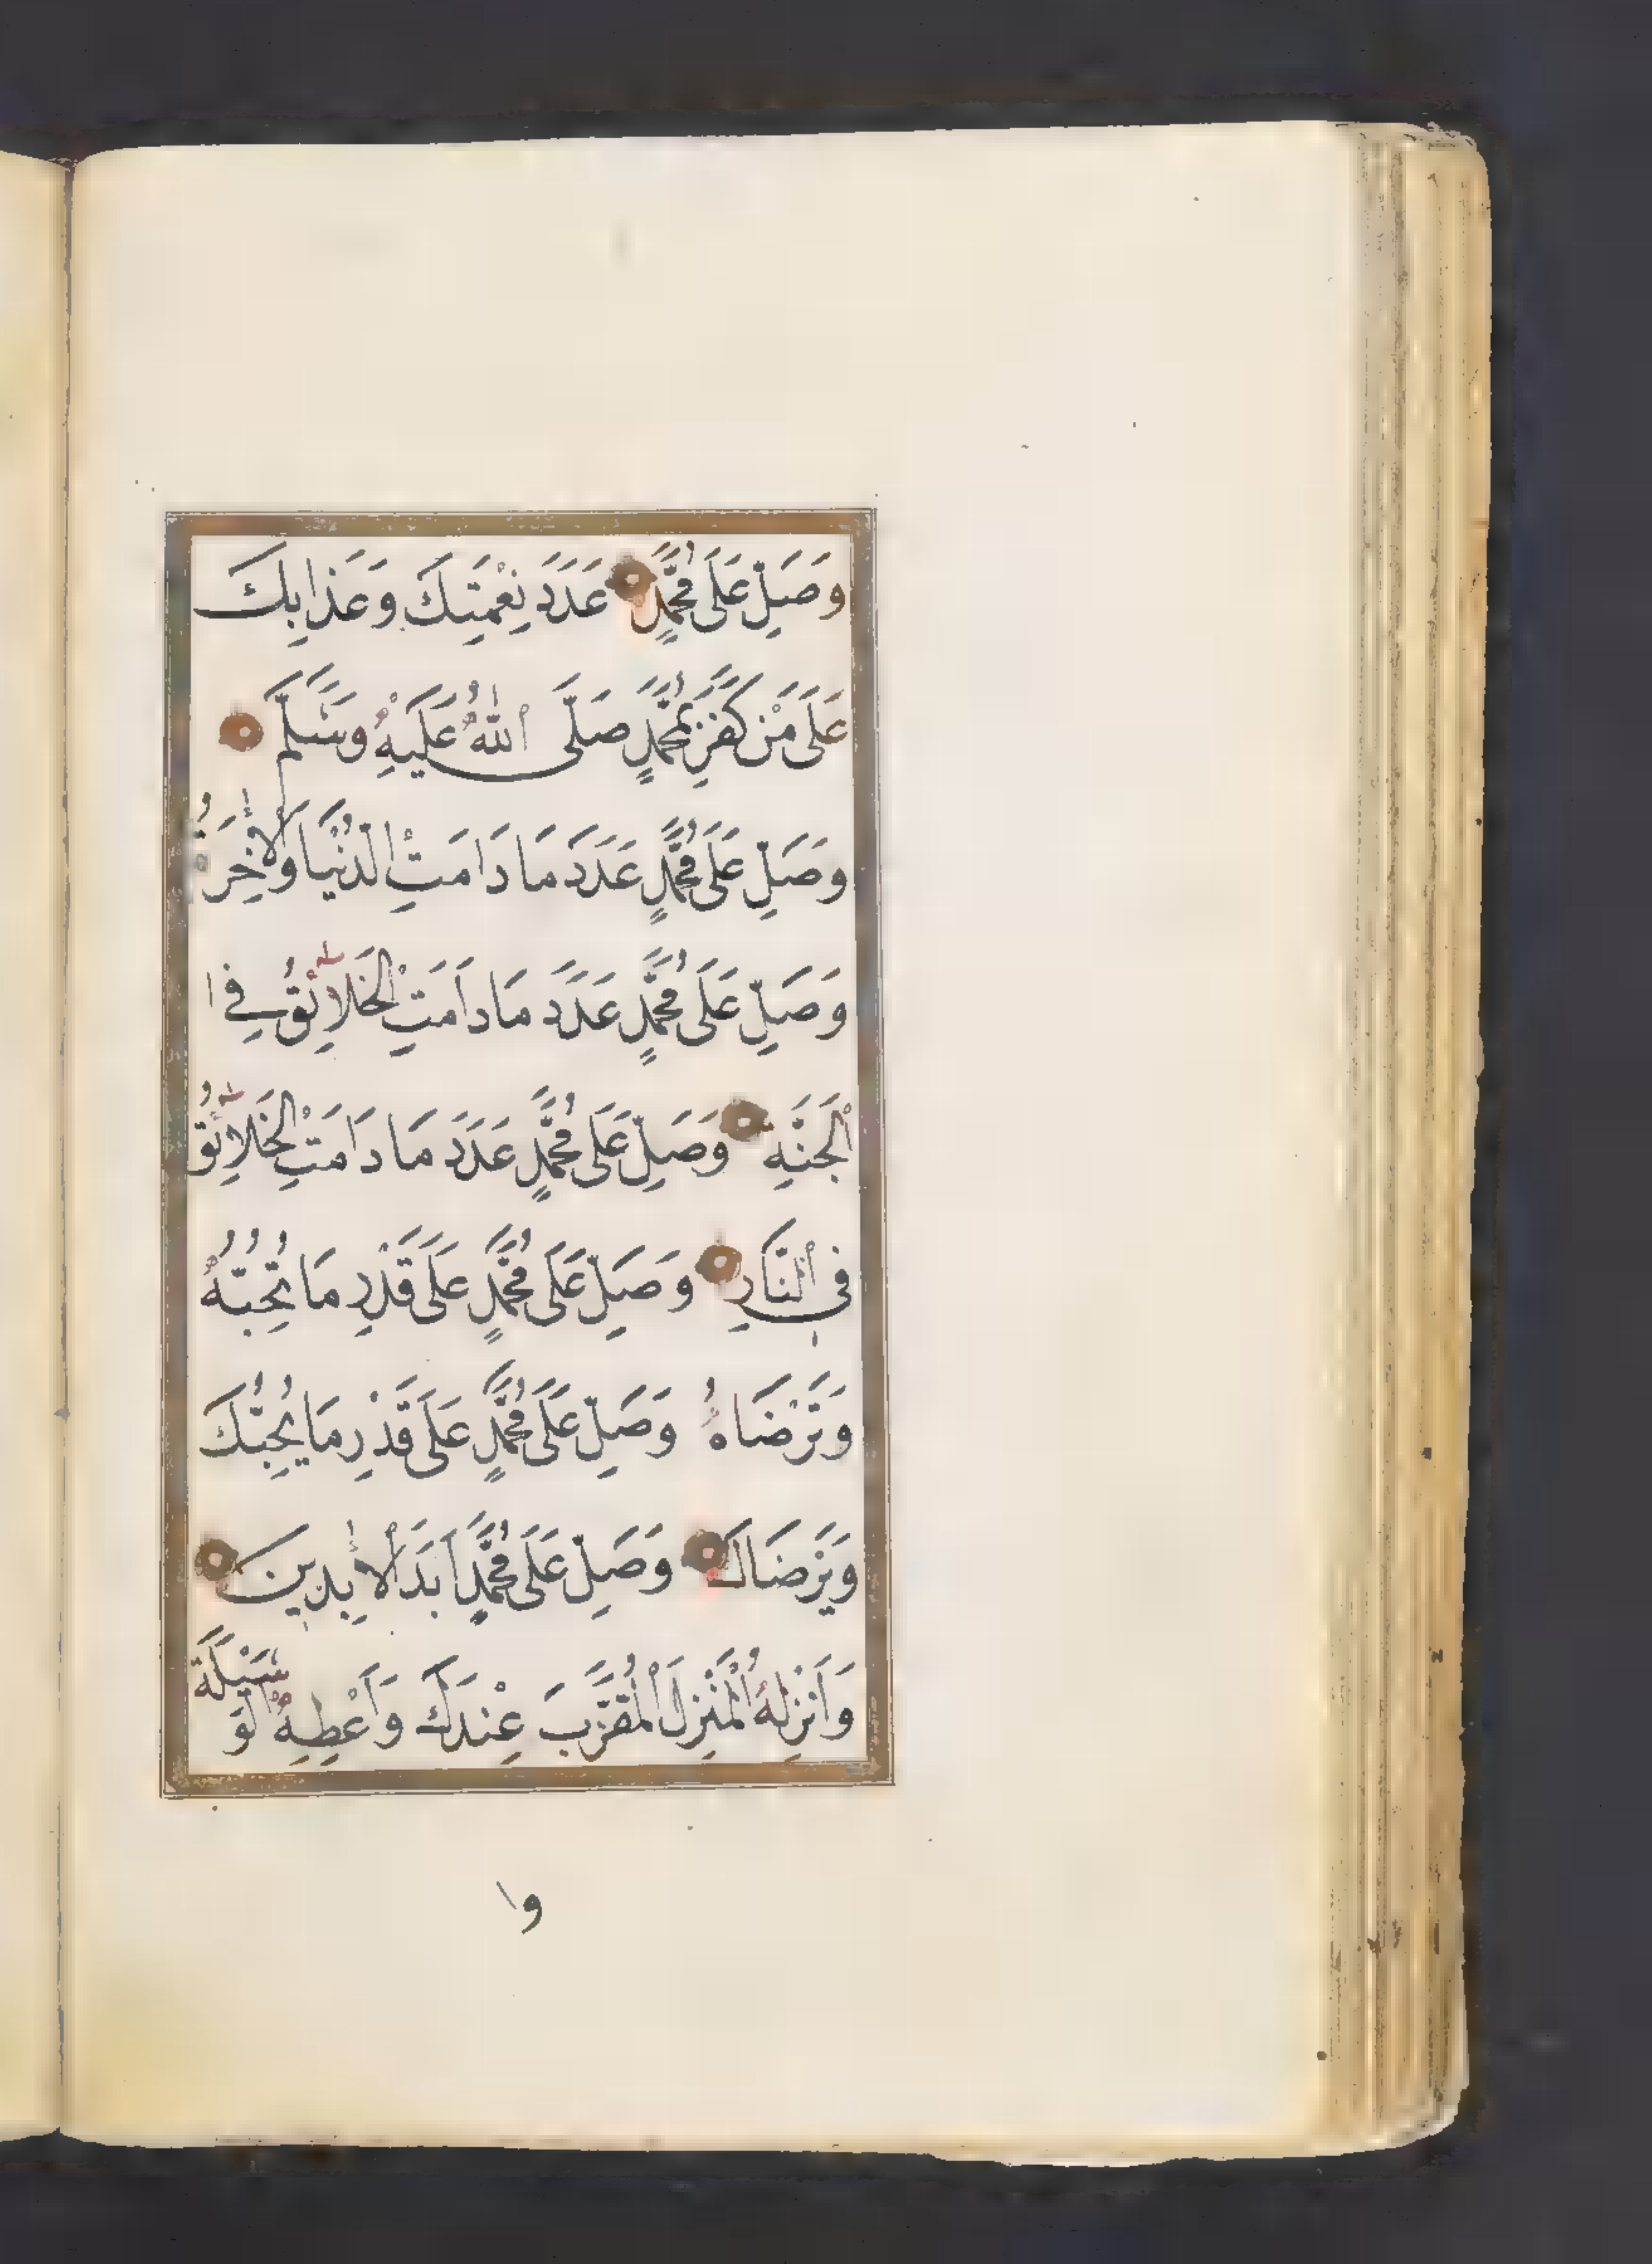 وَصَلِّ عَلَى مُحَمَّدٍ عَدَدَ نِعْمَتِكَ وَعَذَابِكَ
عَلَى مَنْ كَفَرَ بِمُحَمَّدٍ صَلَّى اللهُ عَلَيْهِ وَسَلَّمَ
وَصَلِّ عَلَى مُحَمَّدٍ عَدَدَ مَا دَامَتِ الدُّنْيَا وَالْأٰخِرَةُ
وَصَلِّ عَلَى مُحَمَّدٍ عَدَدَ مَا دَامَتِ الْخَلَائِقُ فِي ا
الْجَنَّةِ وَصَلِّ عَلَى مُحَمَّدٍ عَدَدَ مَا دَامَتِ الْخَلَائِقُ
فِى النَّارِ وَصَلِّ عَلَى مُحَمَّدٍ عَلَى قَدْرِ مَا تُحِبُّهُ
وَتَرْضَاهُ وَصَلِّ عَلَى مُحَمَّدٍ عَلَى قَدْرِ مَا يُحِبُّكَ
وَيَرْضَاكَ وَصَلِّ عَلَى مُحَمَّدٍ اَبَدَ الْأٰبِدِينَ
وَاَنْزِلْهُ الْمُنْزَلَ الْمُقَرَّبَ عِنْدَكَ وَاَعْطِهِ الْوَسِيْلَةَ
وا